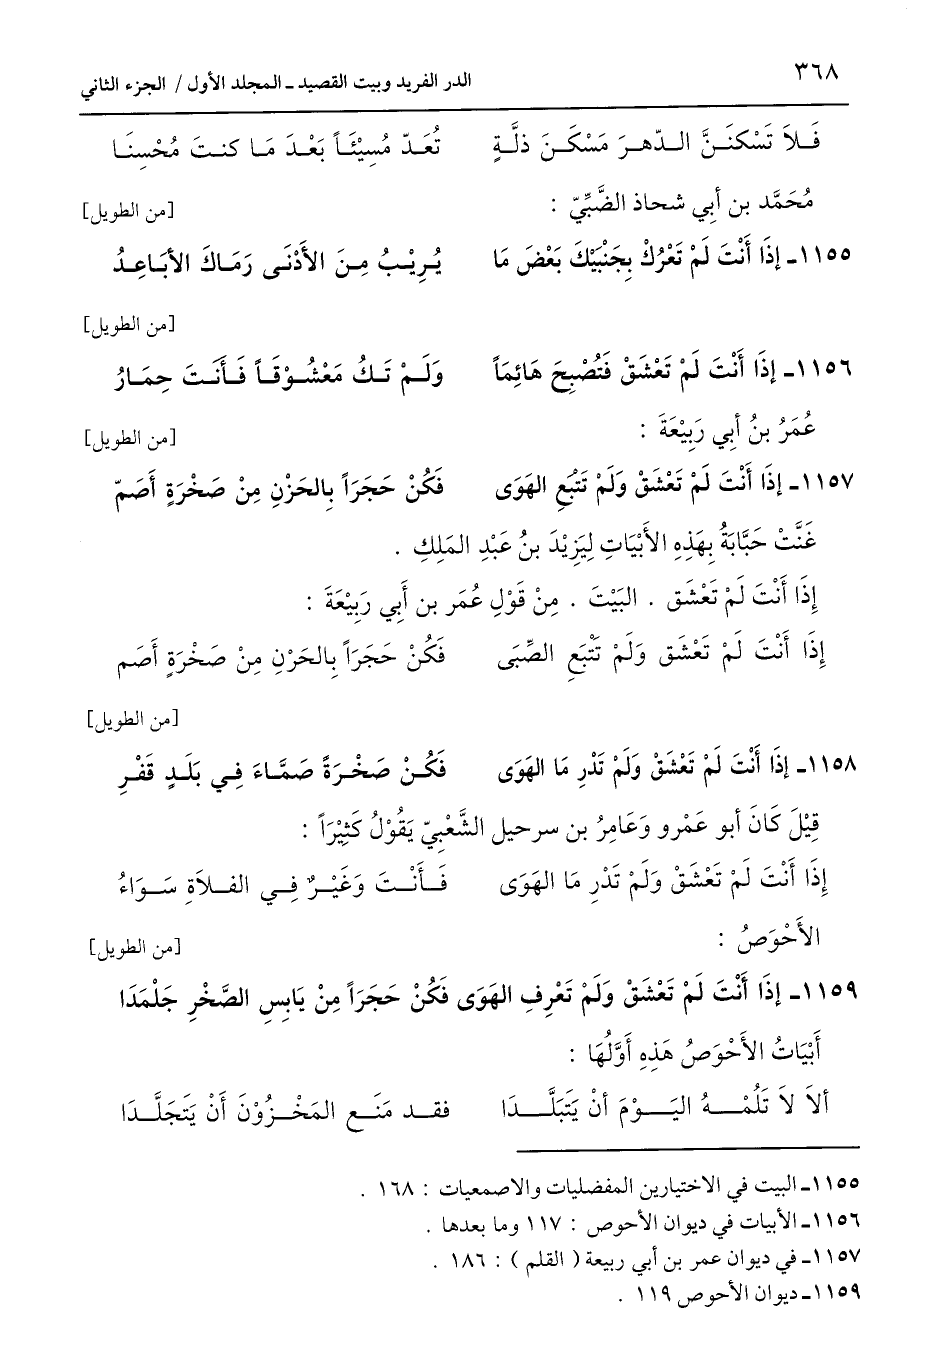 ٣٦٨ الدر الفريد وبيت القصيد ـ المجلد الأول / الجزء الثاني
فَلاَ تَسْكنَنَّ الدّهرَ مَسْكَنَ ذلَّةٍ تُعَدّ مُسِيْئَاً بَعْدَ مَا كنتَ مُحْسِنَا
مُحَمَّد بن أبي شحاذ الضَّبِّيّ : [من الطويل]
١١٥٥ـ إِذَا أَنْتَ لَمْ تَعْرُكْ بِجَنْبَيْكَ بَعْضَ مَا يُرِيْبُ مِنَ الأَدْنَى رَمَاكَ الأبَاعِدُ
[من الطويل]
١١٥٦ـ إِذَا أَنْتَ لَمْ تَعْشَقْ فَتُصْبِحَ هَائِمَاً وَلَمْ تَكُ مَعْشُوْقَاً فَأَنتَ حِمَارُ
عُمَرُ بنُ أَبي رَبِيْعَةَ : [من الطويل]
١١٥٧ـ إِذَا أَنْتَ لَمْ تَعْشَقْ وَلَمْ تَتْبَعِ الهَوَى فَكُنْ حَجَرَاً بِالحَزْنِ مِنْ صَخْرَةٍ أَصَمّ
غَنَّتْ حَبَّابَةُ بِهَذِهِ الأَبْيَاتِ لِيَزِيْدَ بنُ عَبْدِ المَلِكِ .
إِذَا أَنْتَ لَمْ تَعْشَق . البَيْتَ . مِنْ قَوْلِ عُمَر بن أَبي رَبِيْعَةَ :
إِذَا أَنْتَ لَمْ تَعْشَق وَلَمْ تَتْبَعِ الصِّبَى فَكُنْ حَجَرَاً بِالحَزْنِ مِنْ صَخْرَةٍ أَصَم
[من الطويل]
١١٥٨ـ إِذَا أَنْتَ لَمْ تَعْشَقْ وَلَمْ تَدْرِ مَا الهَوَى فَكُنْ صَخْرَةً صَمَّاءَ فِي بَلَدٍ قَفْرِ
قِيْلَ كَانَ أبو عَمْرو وَعَامِرُ بن سرحيل الشَّعْبِيّ يَقُوْلُ كَثِيْرَاً :
إِذَا أَنْتَ لَمْ تَعْشَقْ وَلَمْ تَدْرِ مَا الهَوَى فَأَنْتَ وَعَيْرٌ فِي الفلاَةِ سَوَاءُ
الأَحْوَصُ : [من الطويل]
١١٥٩ـ إِذَا أَنْتَ لَمْ تَعْشَقْ وَلَمْ تَعْرِفِ الهَوَى فَكُنْ حَجَرَاً مِنْ يَابِسِ الصَّخْرِ جَلْمَدَا
أَبْيَاتُ الأَحْوَصُ هَذِهِ أَوَّلُهَا :
ألاَ لاَ تَلُمْهُ اليَوْمَ أنْ يَتَبَلَّدَا فقد مَنَع المَخْزُوْنَ أَنْ يَتَجَلَّدَا
١١٥٥ـ البيت في الاختيارين المفضليات والاصمعيات : ١٦٨ .
١١٥٦ـ الأبيات في ديوان الأحوص : ١١٧ وما بعدها .
١١٥٧ـ في ديوان عمر بن أبي ربيعة ( القلم ) : ١٨٦ .
١١٥٩ـ ديوان الأحوص ١١٩ .